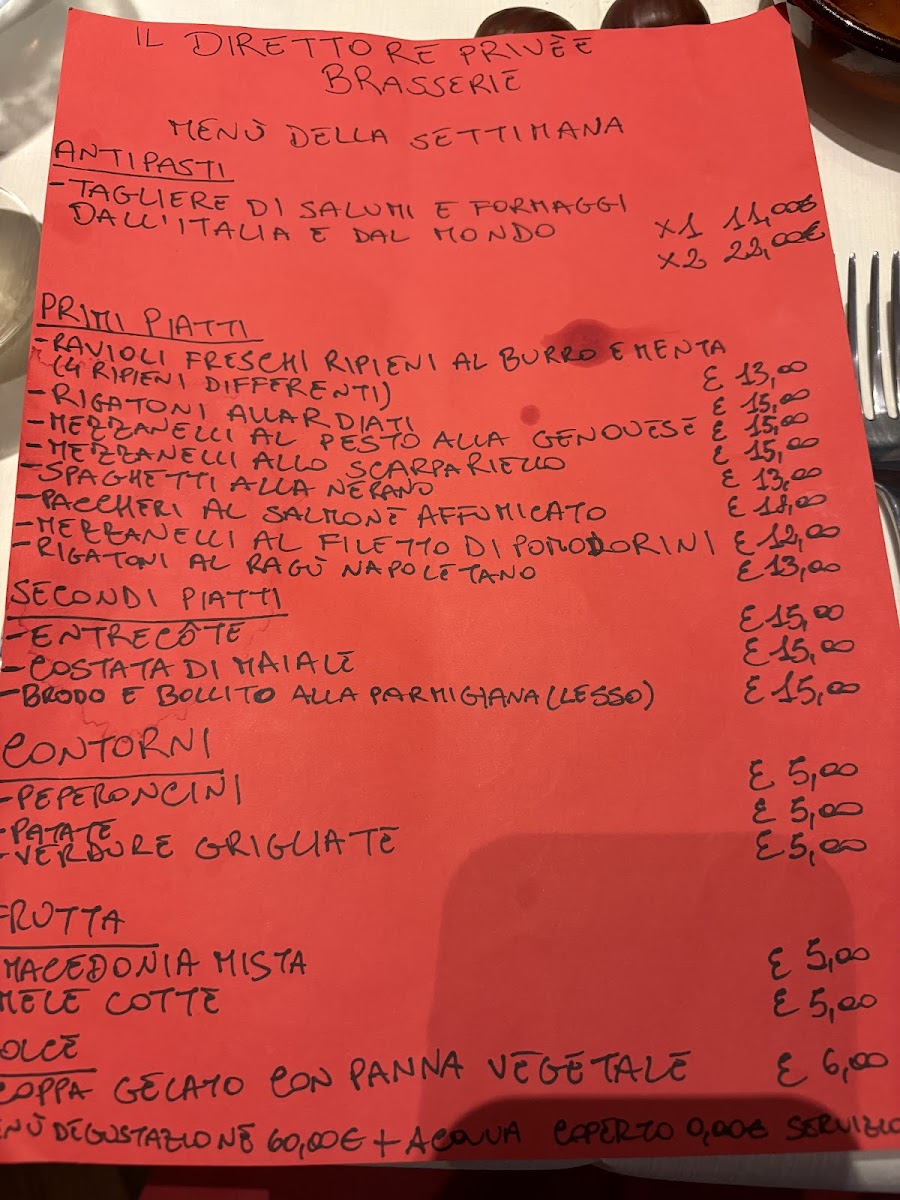 IL DIRETTORE PRIVÈE
BRASSERIE
MENÙ DELLA SETTIMANA
ANTIPASTI
- TAGLIERE DI SALUMI E FORMAGGI
DALL'ITALIA E DAL MONDO
X1 11,00€
X2 22,00€
PRIMI PIATTI
- RAVIOLI FRESCHI RIPIENI AL BURRO E MENTA
(4 RIPIENI DIFFERENTI) € 13,00
- RIGATONI ALLARDIATI € 15,00
- MEZZANELLI AL PESTO ALLA GENOVESE € 15,00
- MEZZANELLI ALLO SCARPARIELLO € 15,00
- SPAGHETTI ALLA NERANO € 13,00
- PACCHERI AL SALMONE AFFUMICATO € 18,00
- MEZZANELLI AL FILETTO DI POMODORINI € 12,00
- RIGATONI AL RAGÙ NAPOLETANO € 13,00
SECONDI PIATTI
- ENTRECÔTE € 15,00
- COSTATA DI MAIALE € 15,00
- BRODO E BOLLITO ALLA PARMIGIANA (LESSO) € 15,00
CONTORNI
- PEPERONCINI € 5,00
- PATATE € 5,00
- VERDURE GRIGLIATE € 5,00
FRUTTA
MACEDONIA MISTA € 5,00
MELE COTTE € 5,00
OLCE
COPPA GELATO CON PANNA VEGETALE € 6,00
ENÙ DEGUSTAZIONE 60,00€ + ACQUA COPERTO 0,00€ SERVIZIO